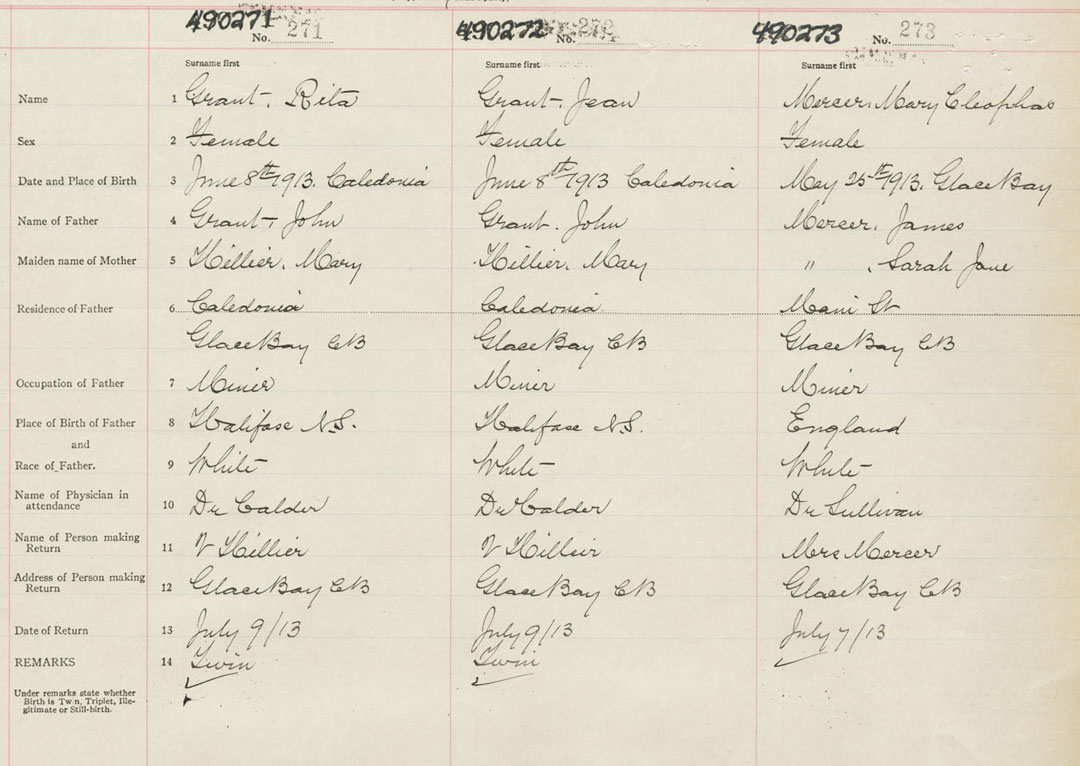 490271 No. 271 490272 No. 272 490273 No. 273
Surname first Surname first Surname first
Name 1 Grant, Rita Grant, Jean Mercer, Mary Cleophas
Sex 2 Female Female Female
Date and Place of Birth 3 June 8th 1913. Caledonia June 8th 1913 Caledonia May 25th 1913. Glace Bay
Name of Father 4 Grant, John Grant. John Mercer, James
Maiden name of Mother 5 Hillier. Mary Hillier. Mary " , Sarah Jane
Residence of Father 6 Caledonia Caledonia Main St
Glace Bay CB Glace Bay CB Glace Bay CB
Occupation of Father 7 Miner Miner Miner
Place of Birth of Father 8 Halifax N.S. Halifax N.S. England
and
Race of Father. 9 White White White
Name of Physician in
attendance 10 Dr Calder Dr Calder Dr Sullivan
Name of Person making
Return 11 V Hillier V Hillier Mrs Mercer
Address of Person making
Return 12 Glace Bay CB Glace Bay CB Glace Bay CB
Date of Return 13 July 9/13 July 9/13 July 7/13
REMARKS 14 Twin Twin
Under remarks state whether
Birth is Twin, Triplet, Ille-
gitimate or Still-birth.